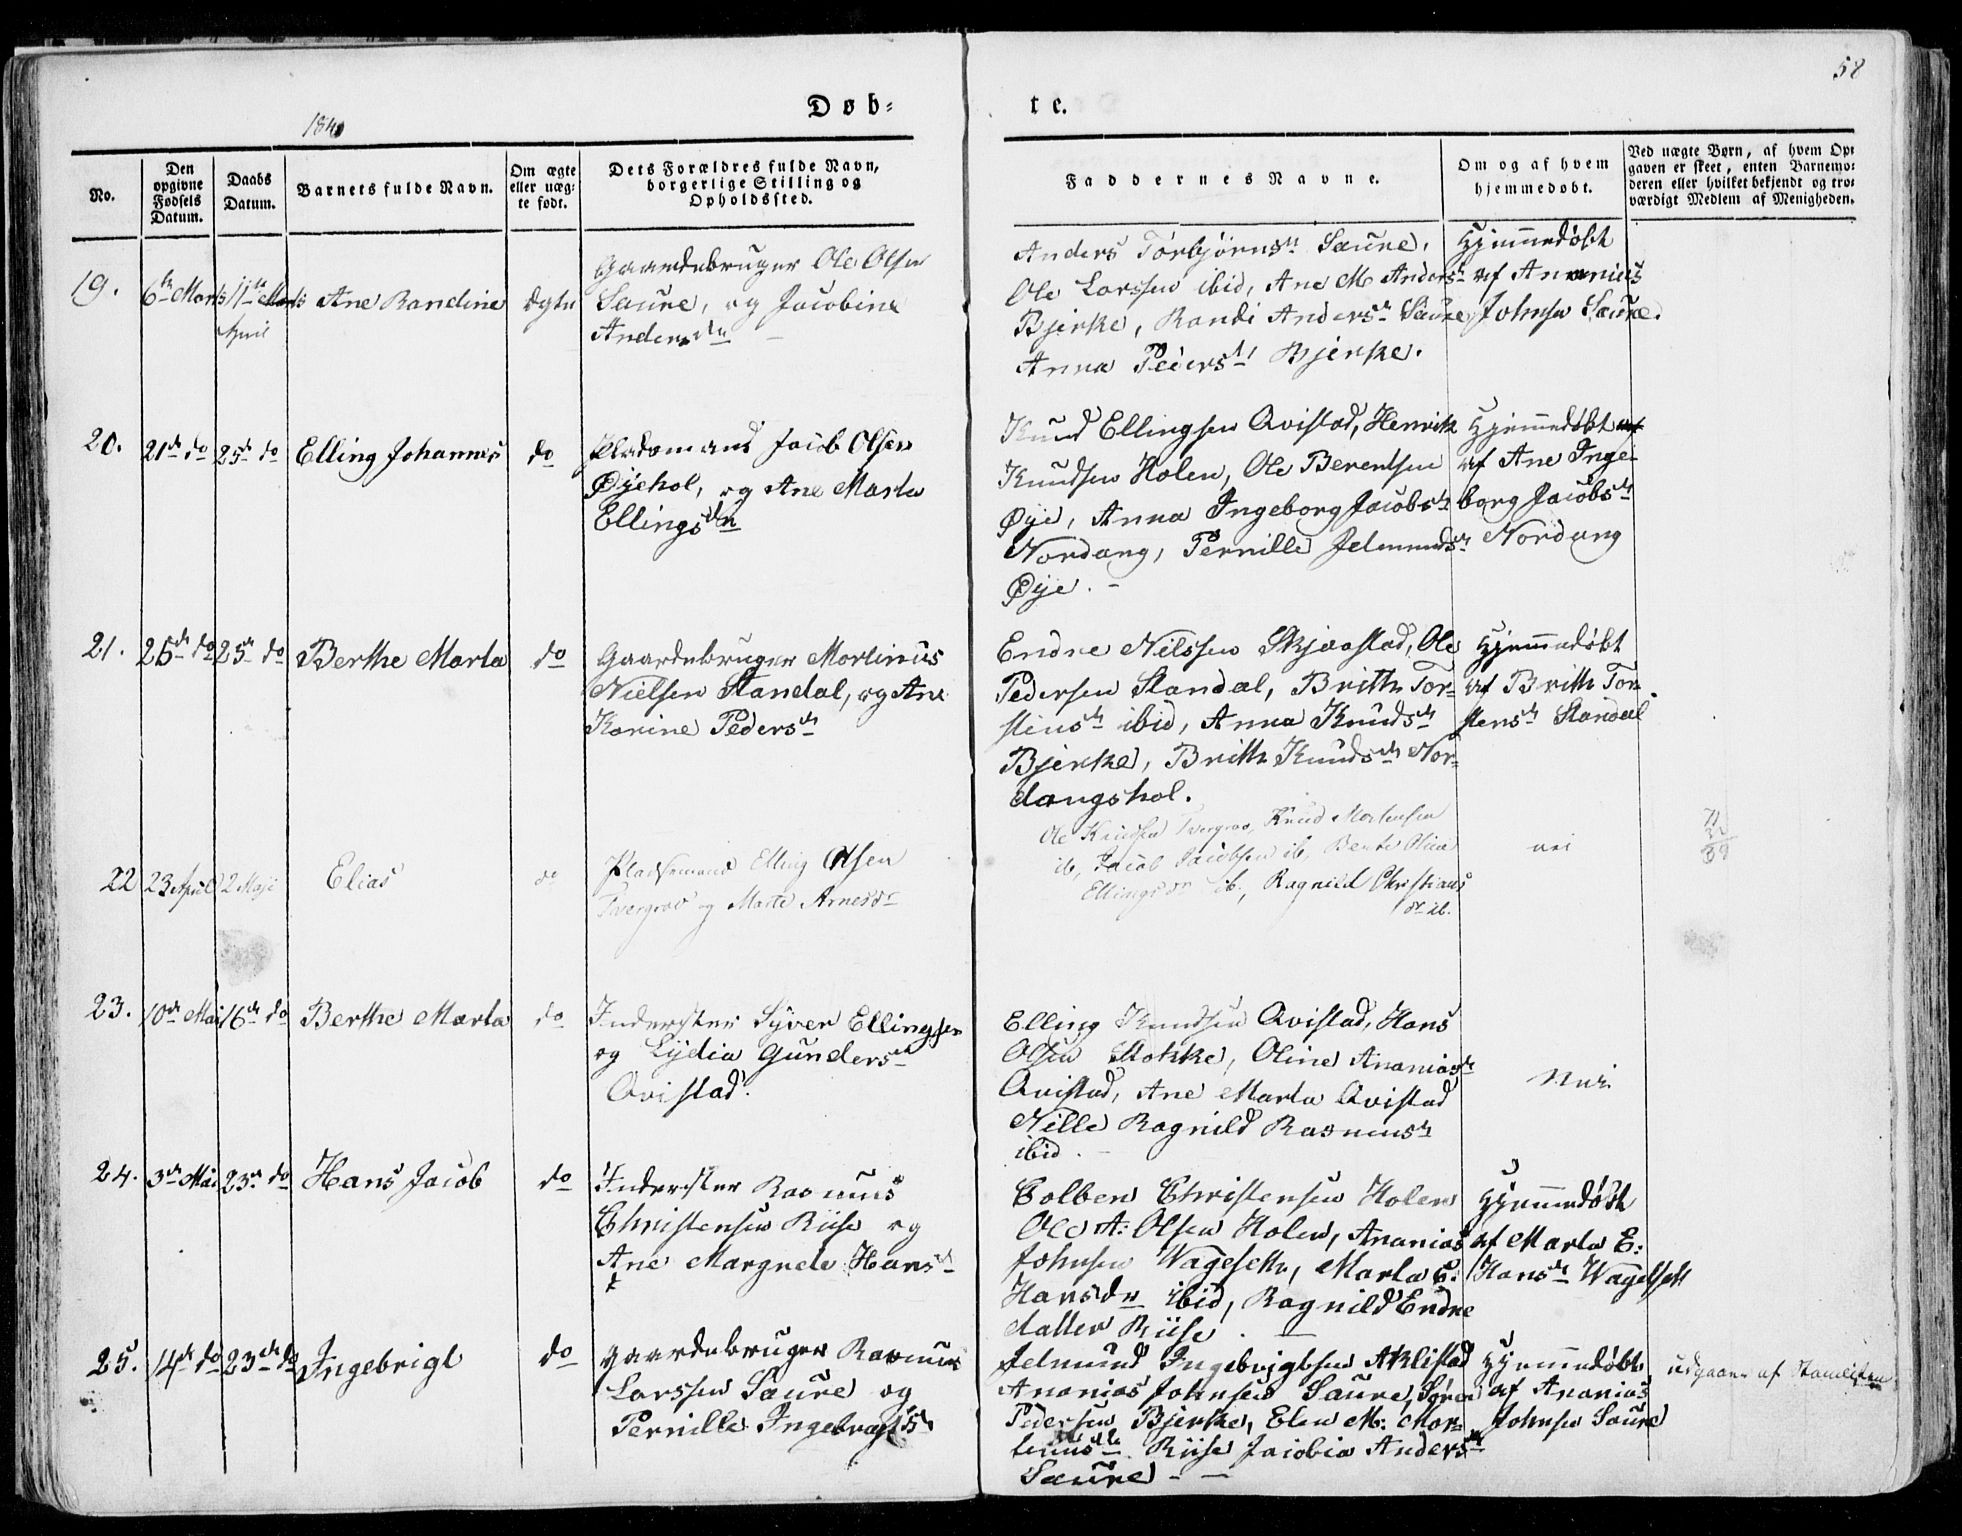 58
Døb-
te.
1840
No.
Den opgivne Fødsels Datum.
Daabs Datum.
Barnets fulde Navn.
Om ægte eller uæg-te født.
Dets Forældres fulde Navn, borgerlige Stilling og Opholdssted.
Faddernes Navne.
Om og af hvem hjemmedøbt.
Ved uægte Børn, af hvem Op-gaven er skeet, enten Barnemo-deren eller hvilket bekjendt og tro-værdigt Medlem af Menigheden.
19. 6te Marts 11te Marts Ane Randine ægte
April
Gaardebruger Ole Olsen
Saure, og Jacobine
Andersdtr
Anders Torbjørns. Saure,
Ole Larssen ibid, Ane M. Andersdr
Bjerke, Randi Andersdr Saure,
Anna Pedersdr Bjerke.
Hjemmedøbt
af Ananias
Johnsen Saure.
20. 21de do 25de do Elling Johannes do
Pladsmand Jacob Olsen
Øyehol, og Ane Marta
Ellingsdtr
Knud Ellingsen Qvistad, Henrik
Knudsen Holen, Ole Berentsen
Øye, Anna Ingeborg Jacobsdr
Nordang, Pernille Jelmundsdr
Øye. -
Hjemmedøbt af
af Ane Inge-
borg Jacobsdr
Nordang
21. 25de do 25de do Berthe Marta do
Gaardebruger Martinus
Nielsen Standal, og Ane
Karine Pedersdr
Endre Nilssen Skjaastad, Ole
Pedersen Standal, Brith Tor-
stensdr ibid, Anna Knudsdr
Bjerke, Brith Knudsdr Nor-
dangshol.
Hjemmedøbt
af Brith Tor-
stensdr Standal
22 23 April 2 Maji Elias do
Pladsmand Elling Olsen
Tvergrov og Marte Arnesdr
Ole Knudsen Tvergrov, Knud Mortensen
ib, Jacob Jacobsen ib, Berte Olina
Ellingsdr ib., Ragnild Christians
dr ib.
nei
23. 10de Mai 16de do Berthe Marta do
Inderster Syver Ellingsen
og Lydia Gundersdr
Qvistad.
Elling Knudsen Qvistad, Hans
Olsen Stokke, Oline Ananiasdr
Qvistad, Ane Marta Qvistad
Nille Ragnild Rasmusdr
ibid. -
Nei.
24. 3de Mai 23de do Hans Jacob do
Inderster Rasmus
Christensen Riise og
Ane Margrete Hansdr
Colben Christensen Holen
Ole A: Olsen Holen, Ananias
Johnsen Wageseth, Marta E:
Hansdr ibid, Ragnild Endre
datter Riise. -
Hjemmedøbt
af Marta E:
Hansdr Wageseth
25. 14de do 23de do Ingebrigt do
Gaardebruger Rasmus
Larssen Saure og
Pernille Ingebrigtsdr
Jelmund Ingebrigtsen Aklestad
Ananias Johnsen Saure, Søren
Pedersen Bjerke, Elen M: Mar-
tinusdr Riise Jacobia Andersdr
Saure - -
Hjemmedøbt
af Ananias
Johnsen Saure
udgaaer af Stamlisten